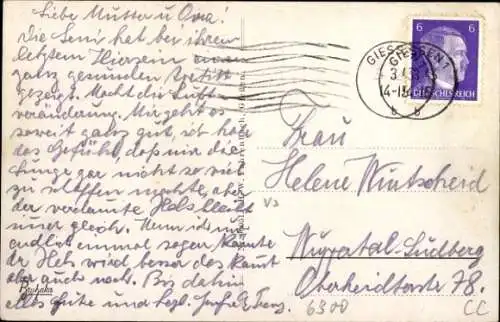 Liebe Mutter u. Oma!
Die Leni hat bei ihrem
letzten Hiersein einen
ganz gesunden Apetitt
gezeigt. Macht die Luft-
veränderung. Mir geht es
soweit ganz gut, ich habe
das Gefühl, daß mir die
Lunge gar nicht so viel
zu schaffen machte, aber
der verdammte Hals bleibt
immer gleich. Wenn ich nur
endlich einmal sagen könnte
der Hals wird besser das kommt
aber auch noch. Bis dahin
alles Gute und herzl. Grüße
GIESSEN 1
14-15
b b
6 6
DEUTSCHES REICH
Frau
Helene Wintscheid
Wuppertal-Sudberg
Oberheidterstr 78.
6300
CC